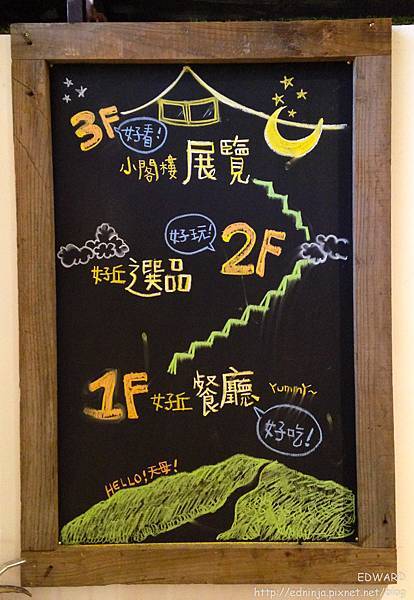 EDWARD
3F
好看!
小閣樓 展覽
好玩!
2F
好丘 選品
1F 好丘 餐廳 Yummy~
好吃!
HELLO!天母!
EDWARD
http://edninja.pixnet.net/blog